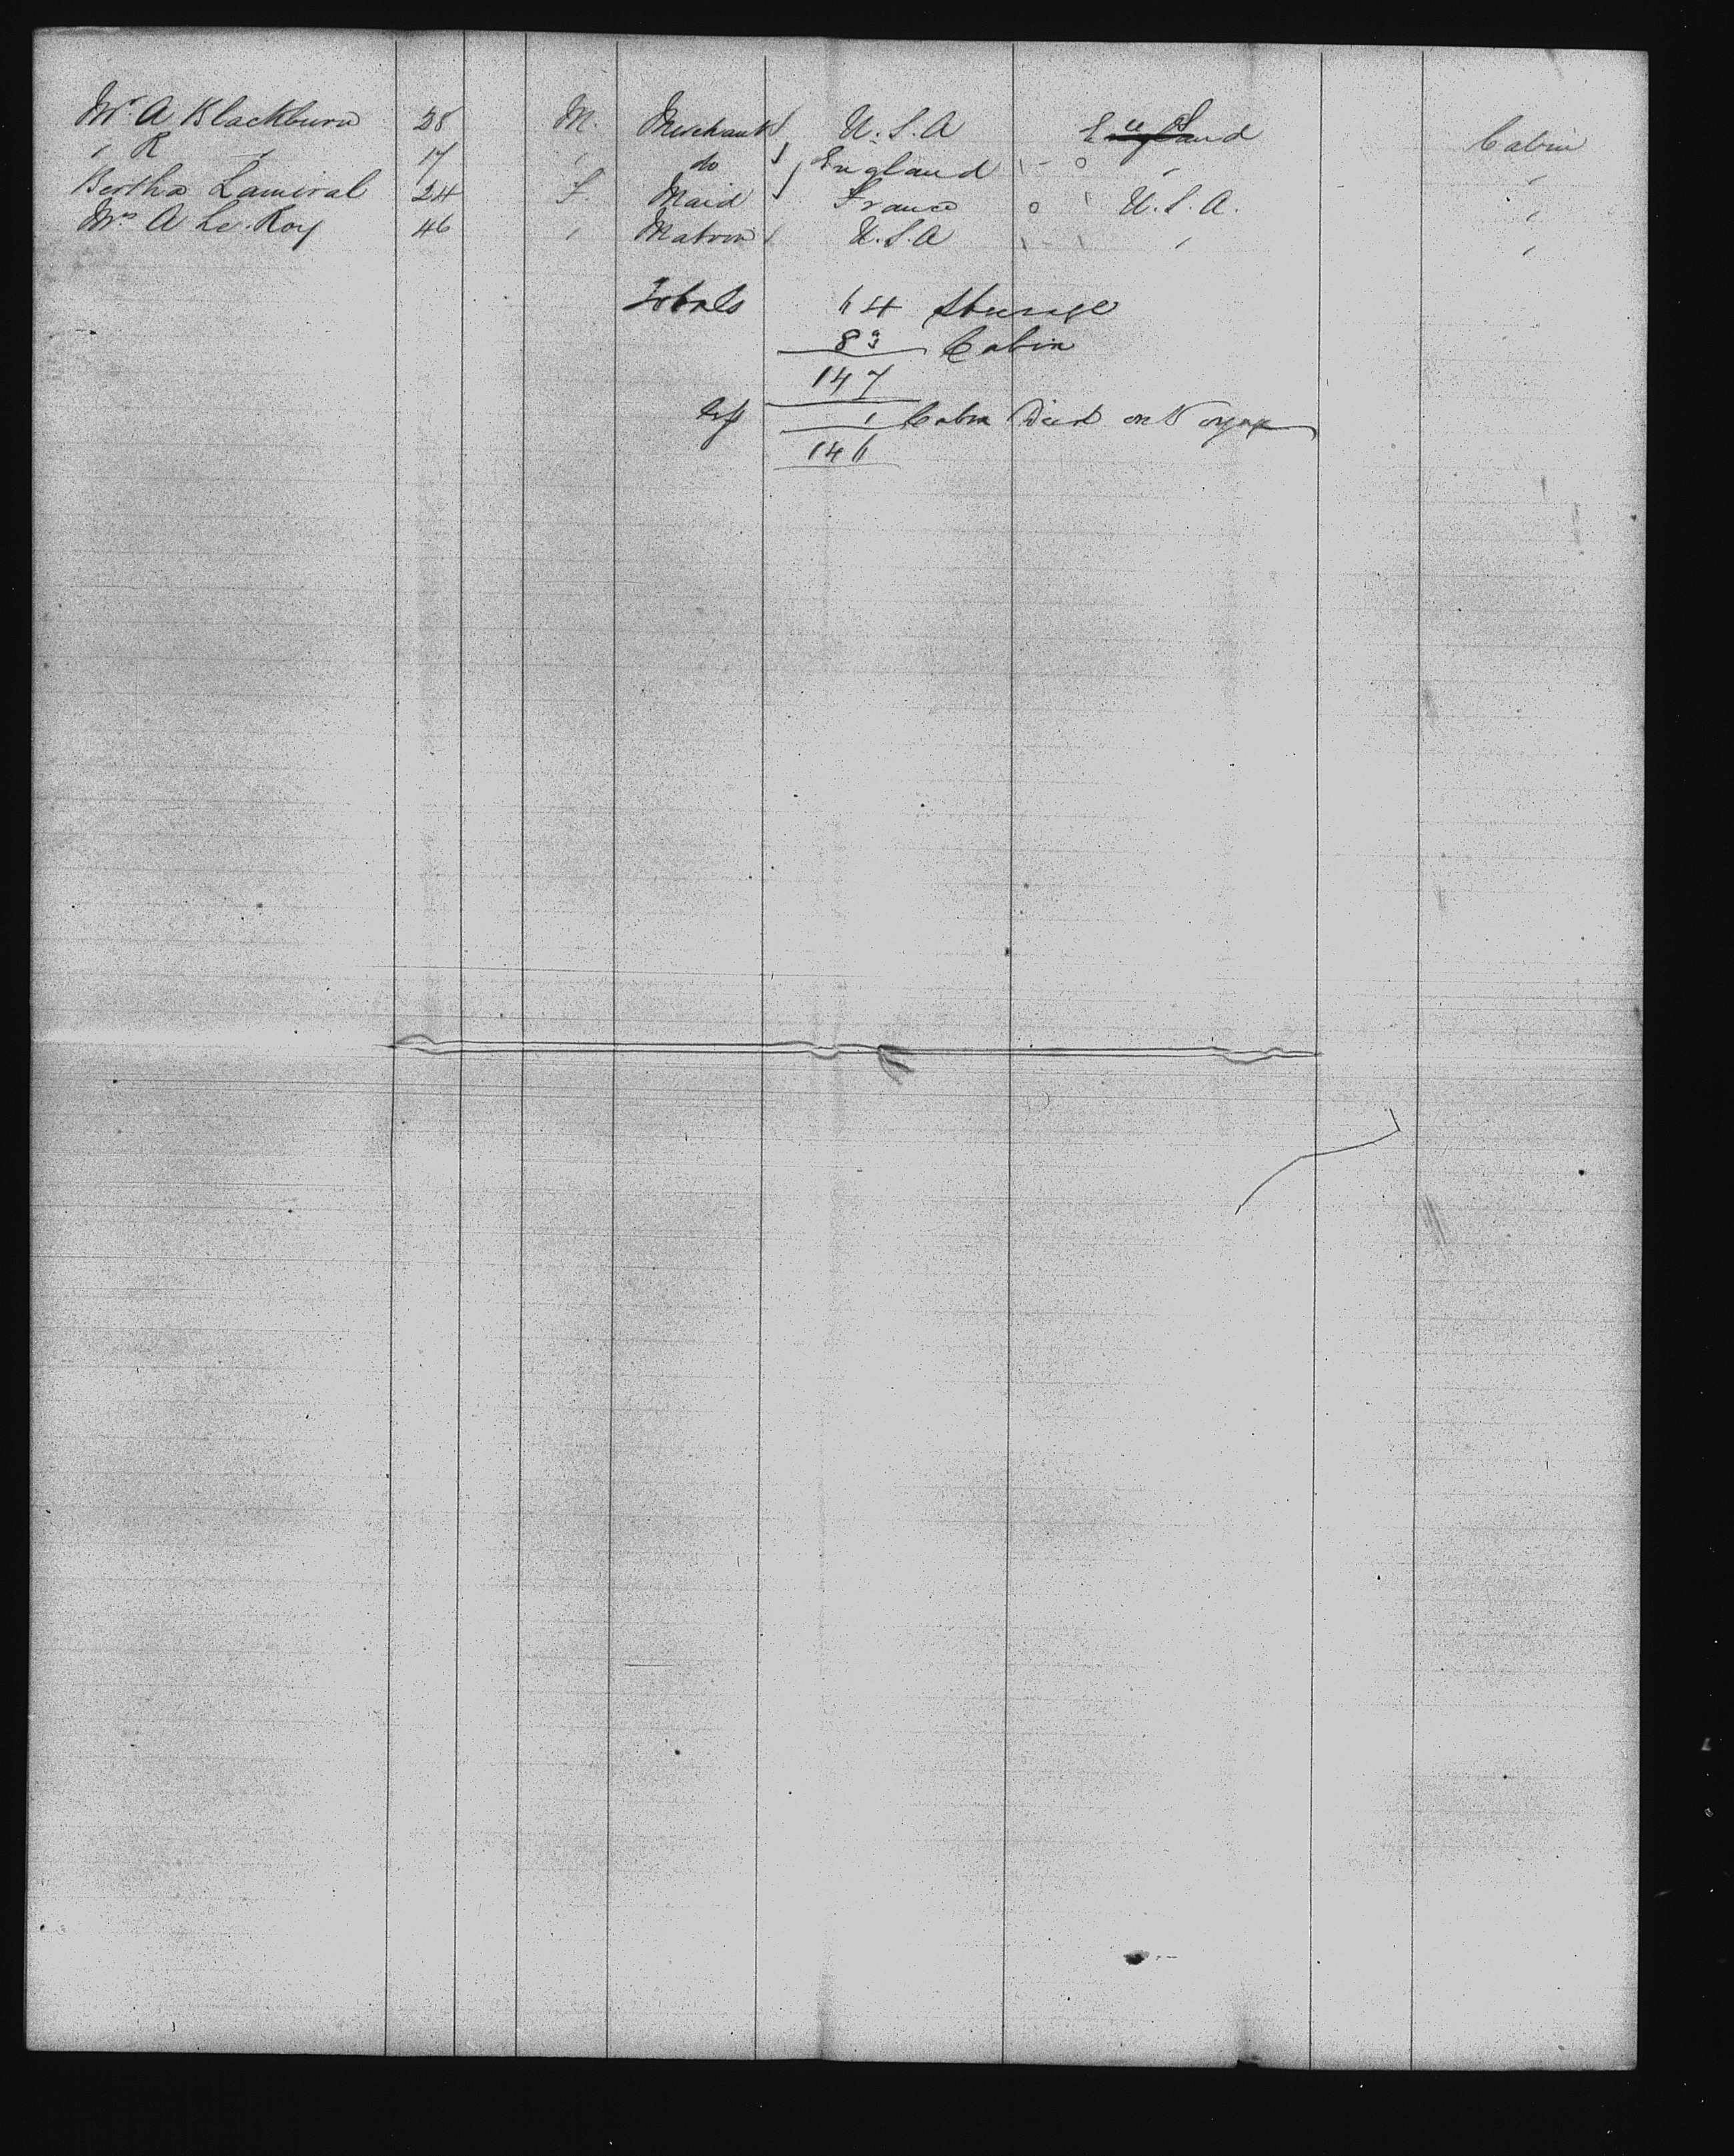 Mr. A Blackburn 28 M. Merchant U.S.A England Cabin
" R " 17 " do England " "
Bertha Lamiral 24 F. Maid France U.S.A. "
Mrs A Le Roy 46 " Matron U.S.A " "
Totals 64 Steerage
83 Cabin
147
less 1 Cabin Died on Voyage
146